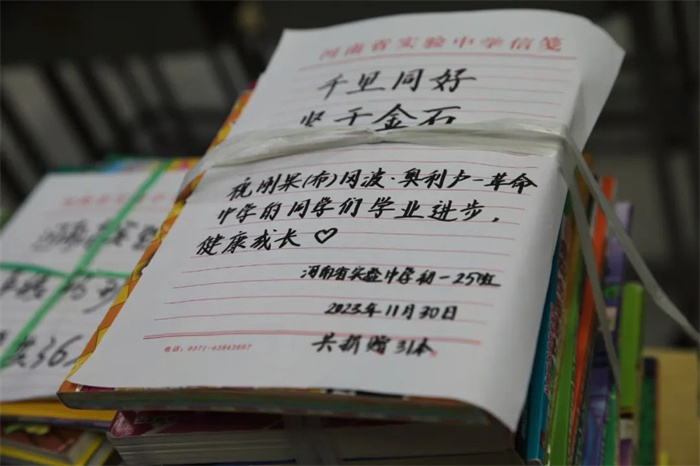 河南省实验中学信笺
千里同好
坚于金石
祝刚果(布)冈波·奥利卢一革命
中学的同学们学业进步,
健康成长♡
河南省实验中学初一25班
2023年11月30日
电话:0371-63943607
共捐赠31本